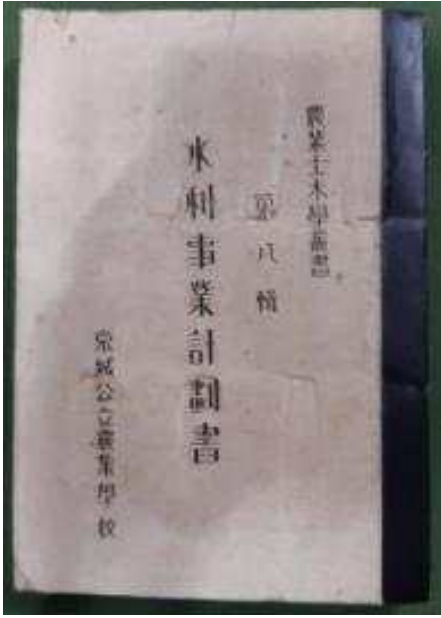 農業土木學叢書
第八輯
水利事業計劃書
京城公立農業學校